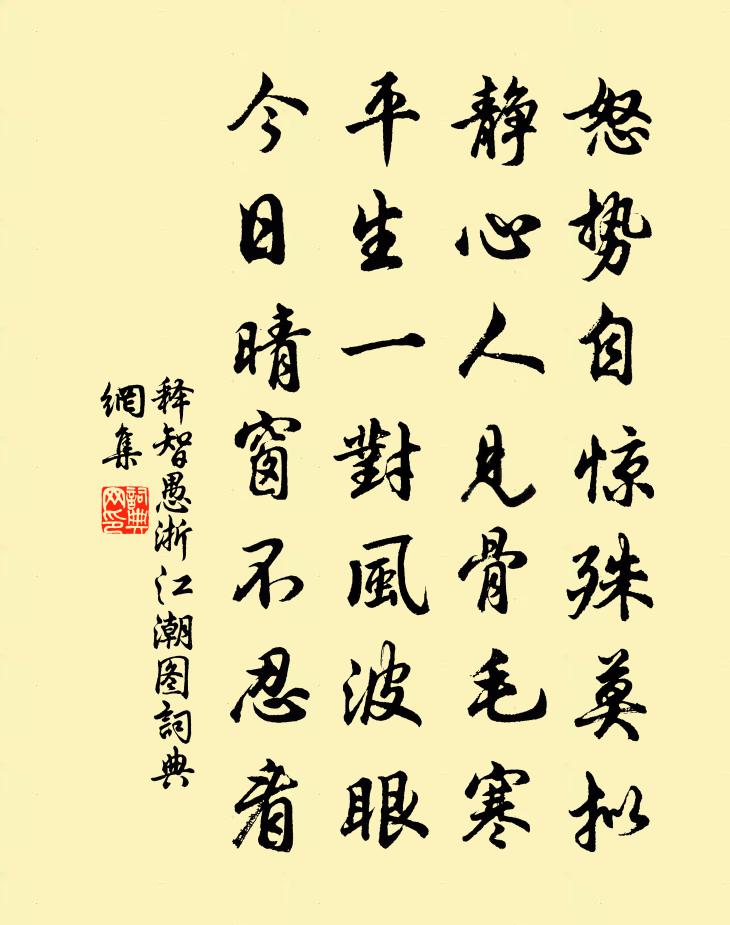 怒势自惊殊莫拟
静心人见骨毛寒
平生一對風波眼
今日晴窗不忍看
释智愚浙江潮图詞典
網集
詞典
网印